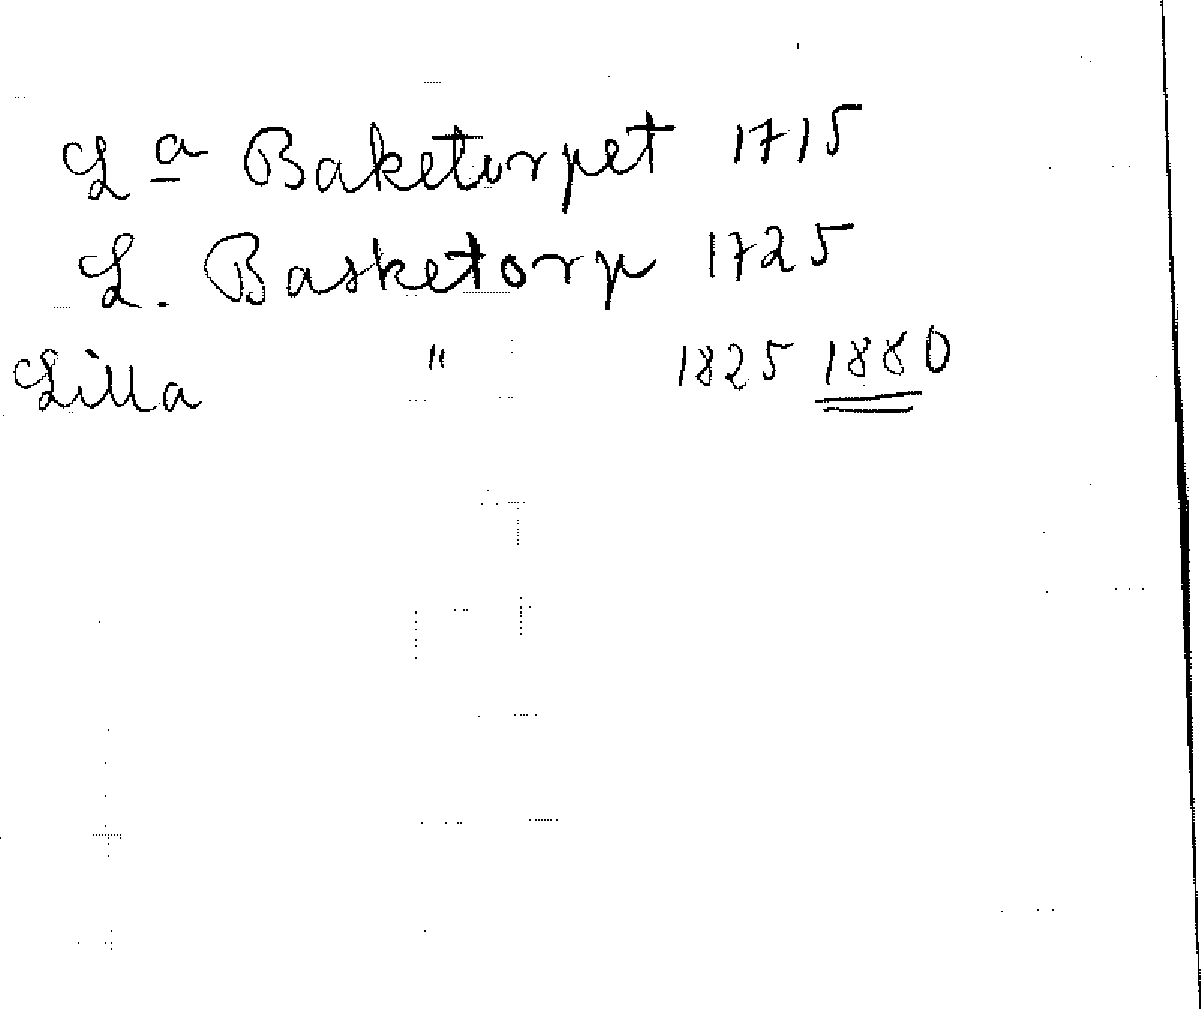 L a Baketorpet 1715
L. Basketorp 1725
Lilla " 1825 1880